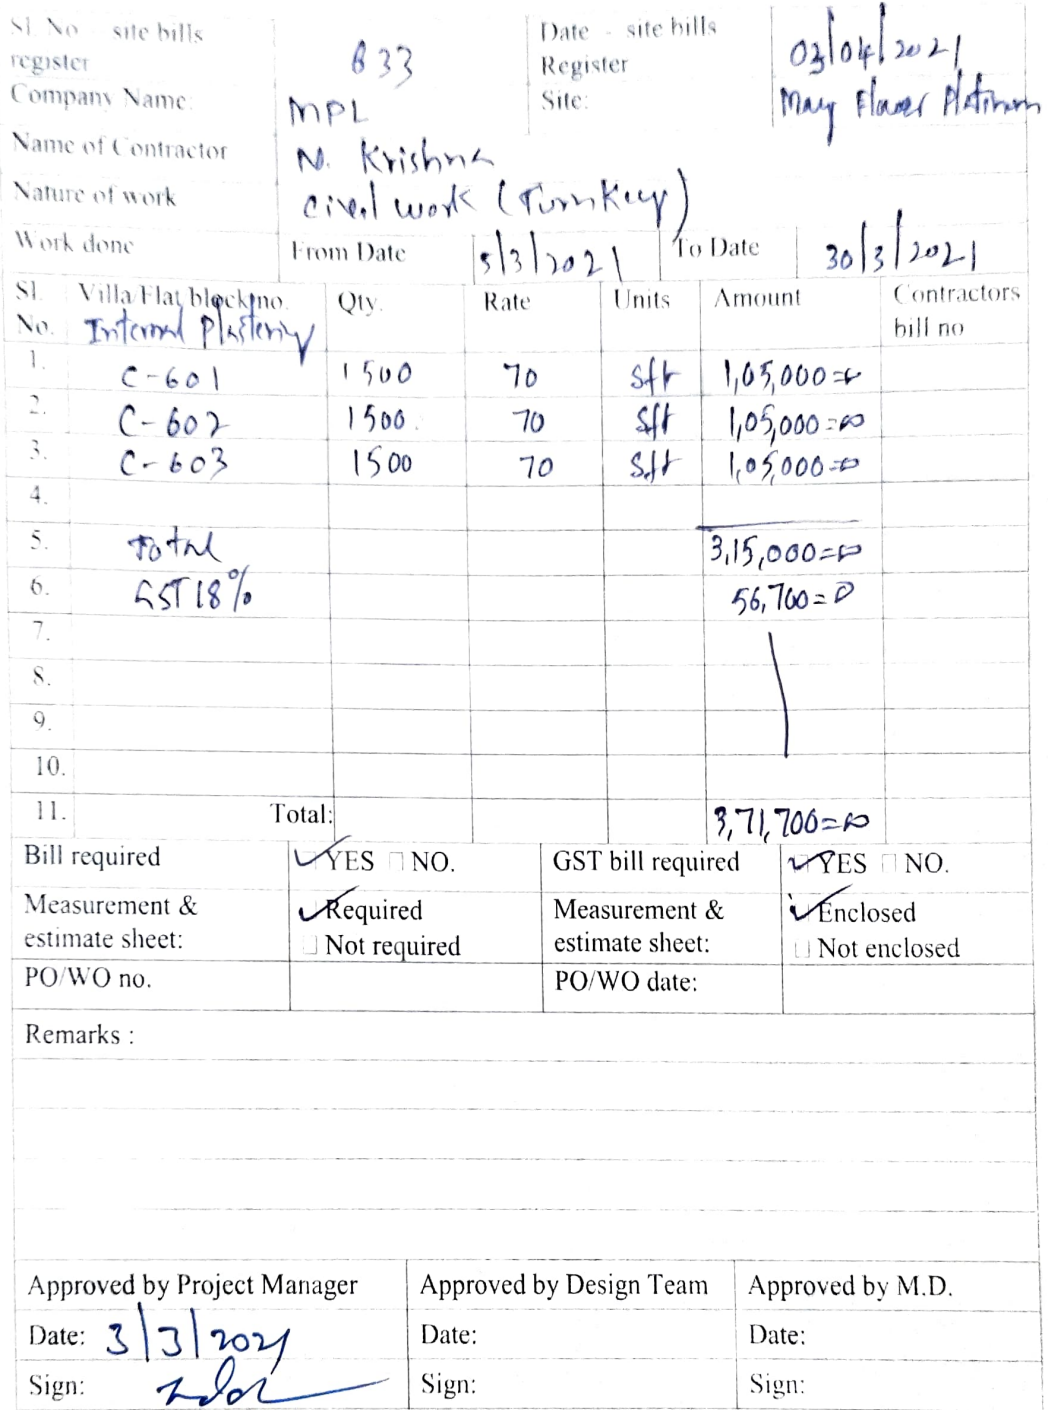 Sl. No - site bills register 833 Date - site bills Register 03/04/2021
Company Name: MPL Site: May Flower Platinum
Name of Contractor N. Krishna
Nature of work Civil work (Turnkey)
Work done From Date 5/3/2021 To Date 30/3/2021
Sl. No. Villa/Flat block no. Qty. Rate Units Amount Contractors bill no
Internal Plastering
1. C-601 1500 70 sft 1,05,000=00
2. C-602 1500 70 sft 1,05,000=00
3. C-603 1500 70 sft 1,05,000=00
4.
5. Total 3,15,000=00
6. GST 18% 56,700=0
7.
8.
9.
10.
11. Total: 3,71,700=00
Bill required YES NO. GST bill required YES NO.
Measurement & estimate sheet: Required Not required Measurement & estimate sheet: Enclosed Not enclosed
PO/WO no. PO/WO date:
Remarks :
Approved by Project Manager Approved by Design Team Approved by M.D.
Date: 3/3/2021 Date: Date:
Sign: Sign: Sign: